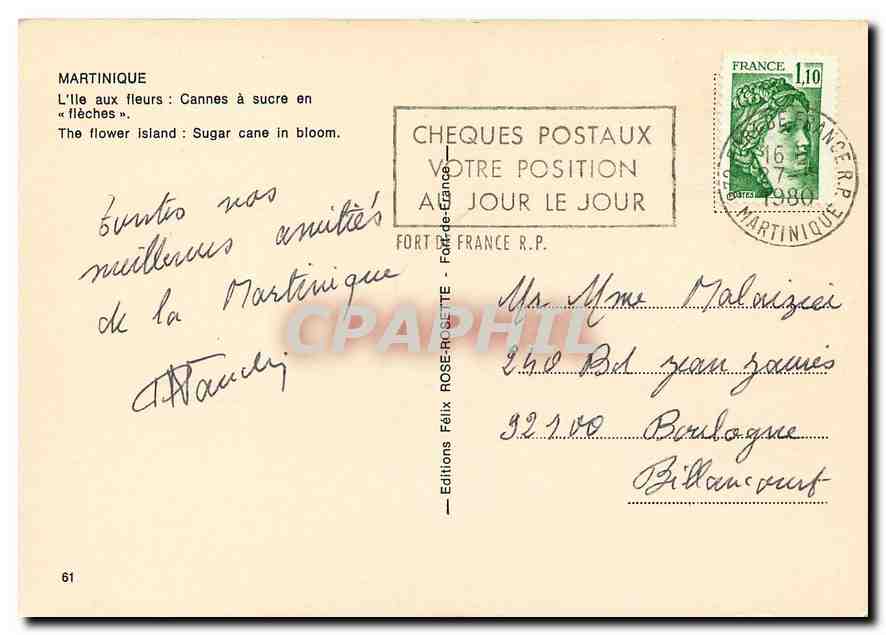 MARTINIQUE
L'Ile aux fleurs : Cannes à sucre en
« flèches ».
The flower island : Sugar cane in bloom.
CHEQUES POSTAUX
VOTRE POSITION
AU JOUR LE JOUR
FORT DE FRANCE R.P.
FRANCE
1,10
POSTES
FRANCE R.P.
16
27
1980
MARTINIQUE
toutes nos
meilleures amitiés
de la Martinique
Mr Mme
240 Bd Jean Jaurès
92100 Boulogne
Billancourt
— Editions Félix ROSE-ROSETTE - Fort-de-France —
CPAPHIL
61